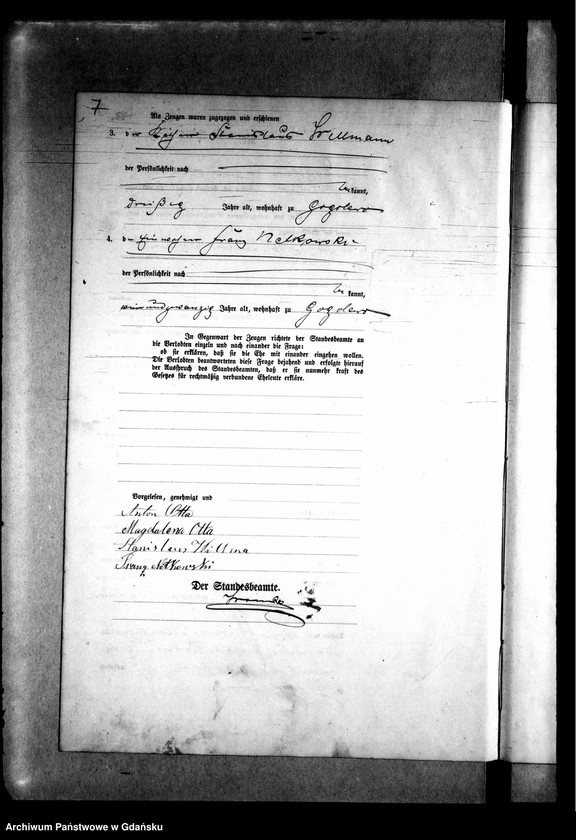 7
Als Zeugen waren zugezogen und erschienen
3. der Stanislaus
der Persönlichkeit nach
kannt,
dreißig Jahre alt, wohnhaft zu Gogolewo
4. der Einwohner Franz Netkowski
der Persönlichkeit nach
kannt,
undzwanzig Jahre alt, wohnhaft zu Gogolewo
In Gegenwart der Zeugen richtete der Standesbeamte an
die Verlobten einzeln und nach einander die Frage:
ob sie erklären, daß sie die Ehe mit einander eingehen wollen.
Die Verlobten beantworteten diese Frage bejahend und erfolgte hierauf
der Ausspruch des Standesbeamten, daß er sie nunmehr kraft des
Gesetzes für rechtmäßig verbundene Eheleute erkläre.
Vorgelesen, genehmigt und
Anton Otta
Magdalena Otta
Stanislaus
Franz Netkowski
Der Standesbeamte.
Archiwum Państwowe w Gdańsku